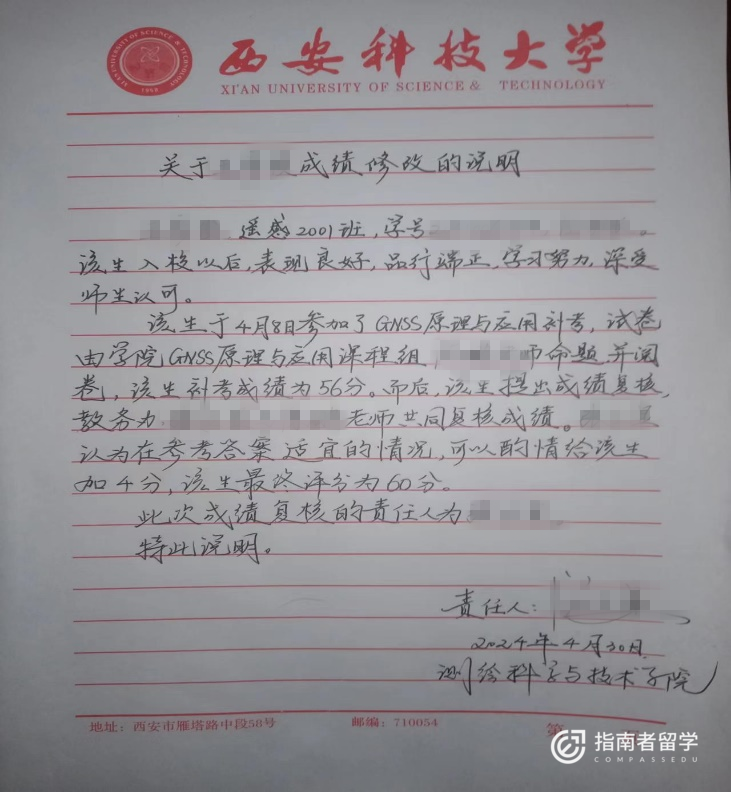 西安科技大学
XI'AN UNIVERSITY OF SCIENCE & TECHNOLOGY
关于 成绩修改的说明
遥感2001班,学号 。
该生入校以后,表现良好,品行端正,学习努力,深受
师生认可。
该生于4月8日参加了GNSS原理与应用补考,试卷
由学院GNSS原理与应用课程组 师命题并阅
卷,该生补考成绩为56分。而后,该生提出成绩复核,
教务为 老师共同复核成绩。
认为在参考答案适宜的情况,可以酌情给该生
加4分,该生最终评分为60分。
此次成绩复核的责任人为
特此说明。
责任人:
2024年4月30日
测绘科学与技术学院
地址:西安市雁塔路中段58号 邮编:710054 第
指南者留学
COMPASSEDU